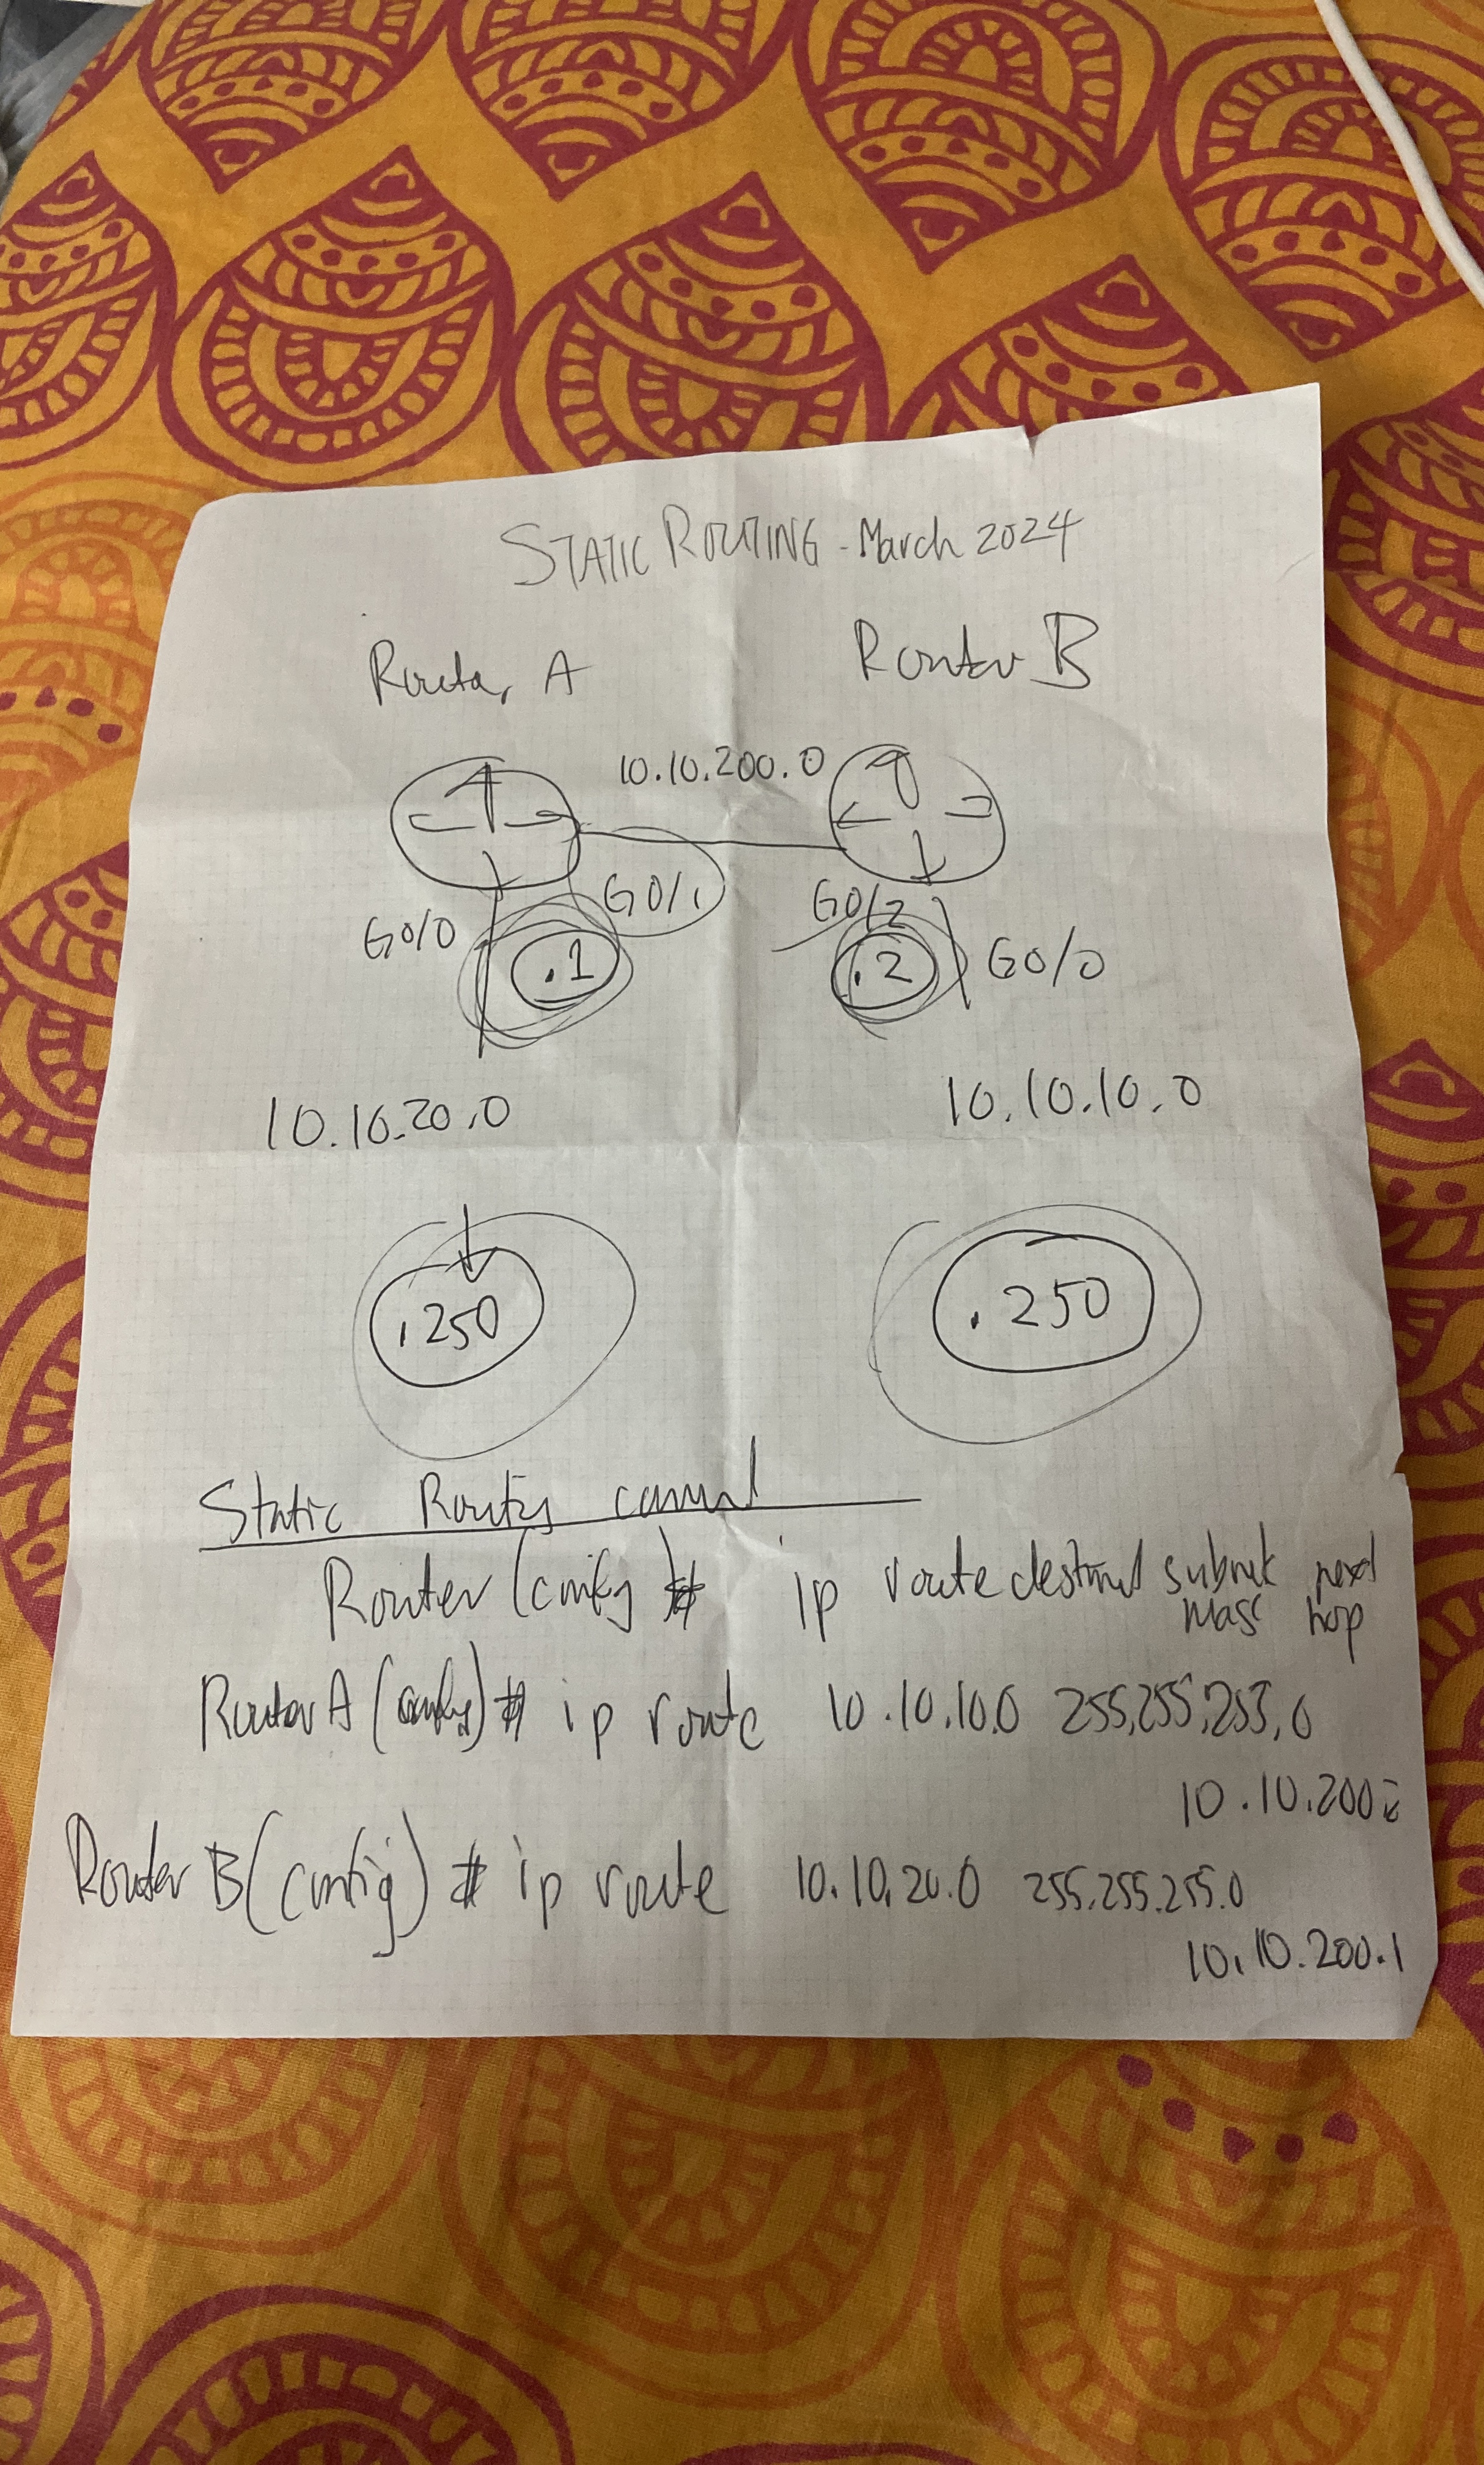 STATIC ROUTING - March 2024
Router A Router B
10.10.200.0
G0/0 G0/1 G0/2 G0/0
.1 .2
10.10.20.0 10.10.10.0
.250 .250
Static Routing
Router (config)# ip route subnet next
hop
Router A (config)# ip route 10.10.10.0 255.255.255.0
10.10.200.2
Router B (config) # ip route 10.10.20.0 255.255.255.0
10.10.200.1